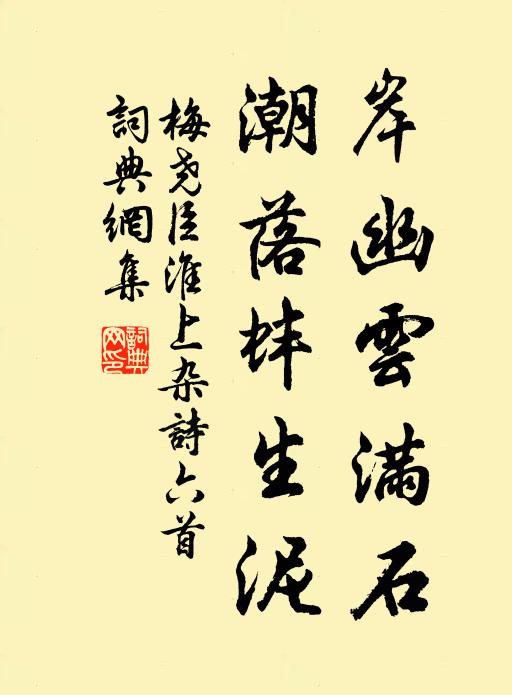 岸幽雲满石
潮落蚌生泥
梅尧臣淮上杂詩六首
詞典網集
詞典
网印